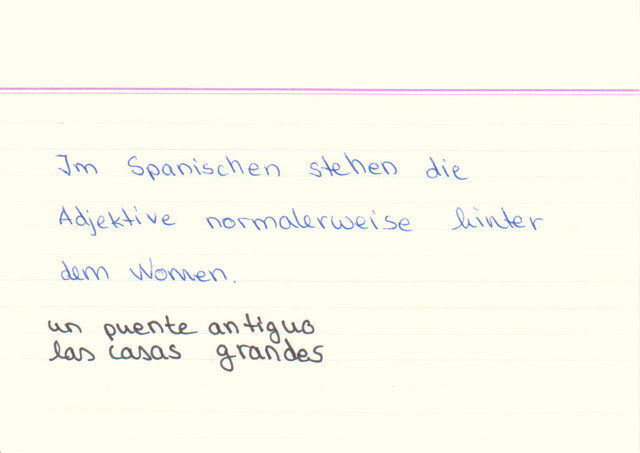 Im Spanischen stehen die
Adjektive normalerweise hinter
dem Nomen.
un puente antiguo
las casas grandes